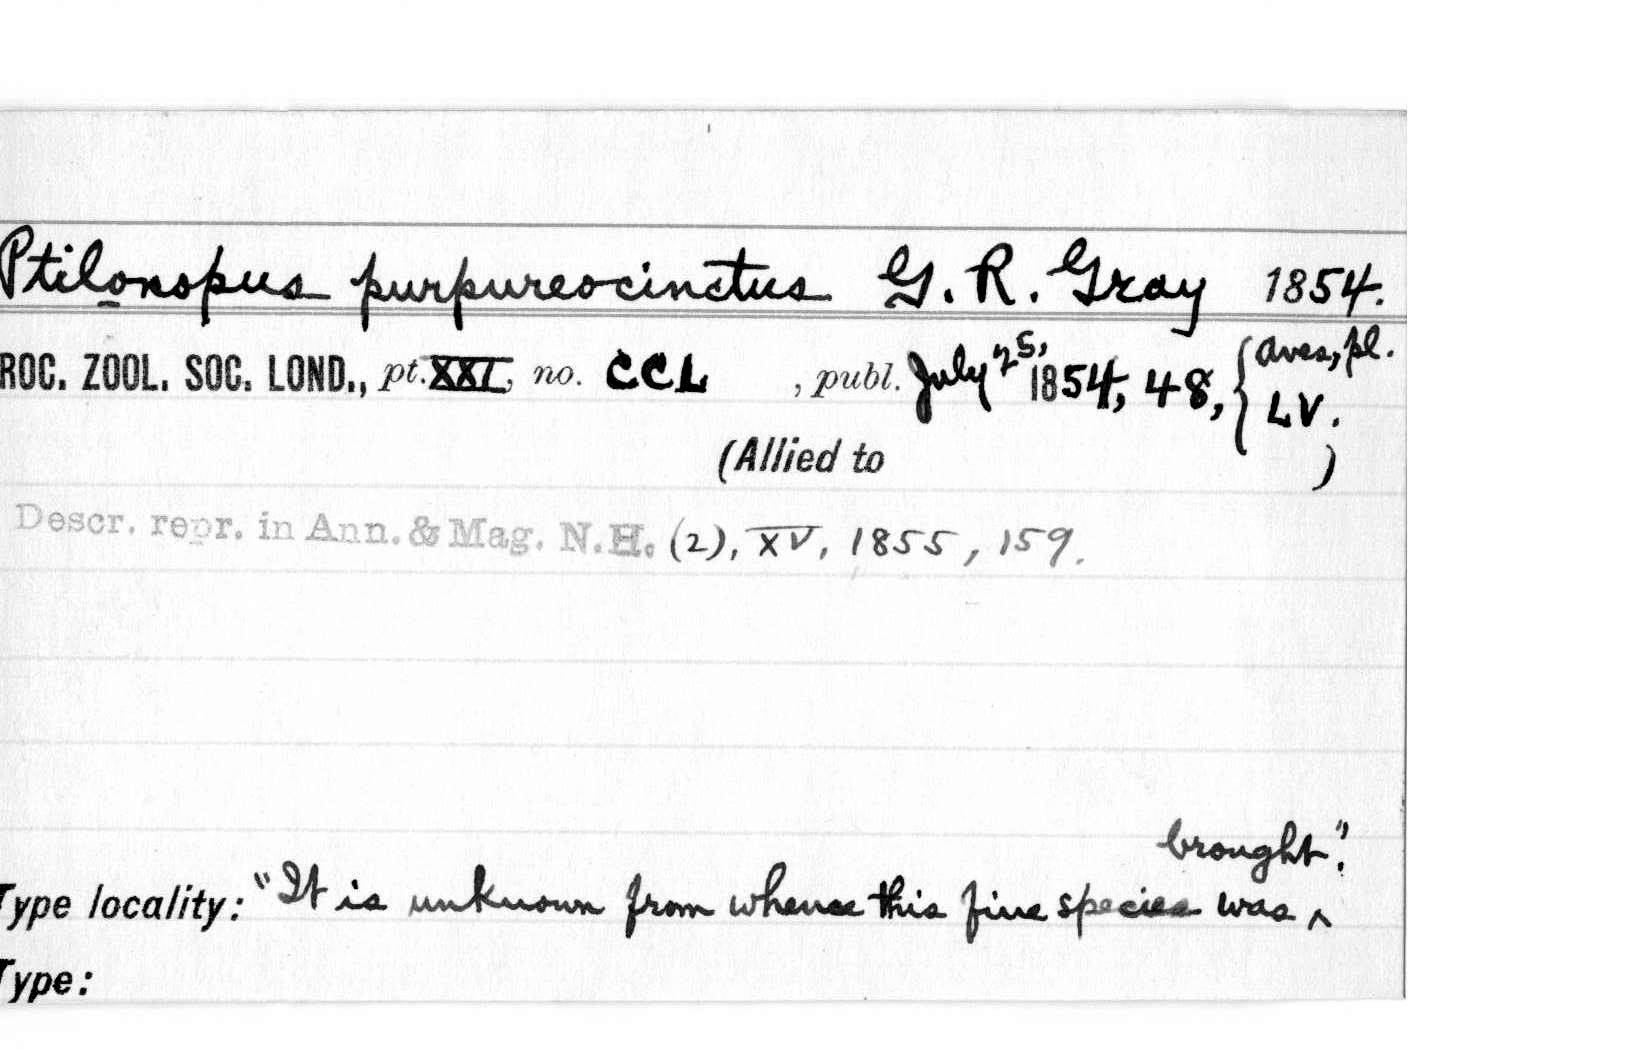 Ptilonopus purpureocinctus G. R. Gray 1854.
ROC. ZOOL. SOC. LOND., pt. XXI, no. CCL , publ. July 25, 1854, 48, { Aves, pl. LV.
(Allied to )
Descr. repr. in Ann. & Mag. N.H. (2), XV, 1855, 159.
brought."
Type locality: "It is unknown from whence this fine species was ^
Type: